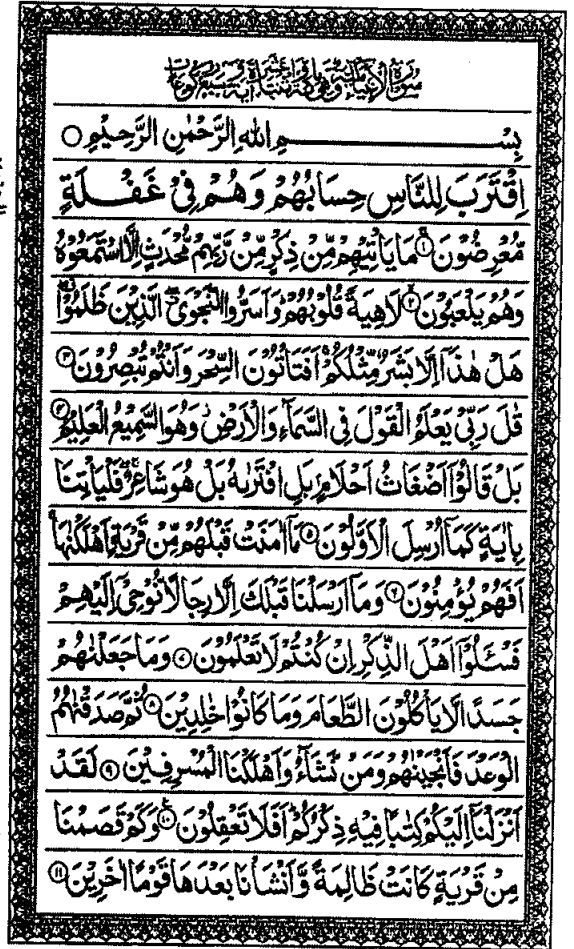 سُوْرَةُ الْاَنْبِيَآءِ مَكِّيَّةٌ وَّهِيَ مِائَةٌ وَّاثْنَتَا عَشْرَةَ اٰيَةً وَّسَبْعُ رُكُوْعَاتٍ
بِسْمِ اللّٰهِ الرَّحْمٰنِ الرَّحِيْمِ ○
اِقْتَرَبَ لِلنَّاسِ حِسَابُهُمْ وَهُمْ فِيْ غَفْلَةٍ
مُّعْرِضُوْنَ ۚ﴿۱﴾ مَا يَاْتِيْهِمْ مِّنْ ذِكْرٍ مِّنْ رَّبِّهِمْ مُّحْدَثٍ اِلَّا اسْتَمَعُوْهُ
وَهُمْ يَلْعَبُوْنَ ۙ﴿۲﴾ لَاهِيَةً قُلُوْبُهُمْ ؕ وَاَسَرُّوا النَّجْوَى ۖ الَّذِيْنَ ظَلَمُوْا ۖ
هَلْ هٰذَاۤ اِلَّا بَشَرٌ مِّثْلُكُمْ ۚ اَفَتَاْتُوْنَ السِّحْرَ وَاَنْتُمْ تُبْصِرُوْنَ ﴿۳﴾
قٰلَ رَبِّيْ يَعْلَمُ الْقَوْلَ فِي السَّمَآءِ وَالْاَرْضِ ؗ وَهُوَ السَّمِيْعُ الْعَلِيْمُ ﴿۴﴾
بَلْ قَالُوْۤا اَضْغَاثُ اَحْلَامٍۭ بَلِ افْتَرٰىهُ بَلْ هُوَ شَاعِرٌ ۖۚ فَلْيَاْتِنَا
بِاٰيَةٍ كَمَاۤ اُرْسِلَ الْاَوَّلُوْنَ ﴿۵﴾ مَاۤ اٰمَنَتْ قَبْلَهُمْ مِّنْ قَرْيَةٍ اَهْلَكْنٰهَا ۚ
اَفَهُمْ يُؤْمِنُوْنَ ﴿۶﴾ وَمَاۤ اَرْسَلْنَا قَبْلَكَ اِلَّا رِجَالًا نُّوْحِيْۤ اِلَيْهِمْ
فَسْـَٔلُوْۤا اَهْلَ الذِّكْرِ اِنْ كُنْتُمْ لَا تَعْلَمُوْنَ ﴿۷﴾ وَمَا جَعَلْنٰهُمْ
جَسَدًا لَّا يَاْكُلُوْنَ الطَّعَامَ وَمَا كَانُوْا خٰلِدِيْنَ ﴿۸﴾ ثُمَّ صَدَقْنٰهُمُ
الْوَعْدَ فَاَنْجَيْنٰهُمْ وَمَنْ نَّشَآءُ وَاَهْلَكْنَا الْمُسْرِفِيْنَ ﴿۹﴾ لَقَدْ
اَنْزَلْنَاۤ اِلَيْكُمْ كِتٰبًا فِيْهِ ذِكْرُكُمْ ؕ اَفَلَا تَعْقِلُوْنَ ﴿۱۰﴾ وَكَمْ قَصَمْنَا
مِنْ قَرْيَةٍ كَانَتْ ظَالِمَةً وَّاَنْشَاْنَا بَعْدَهَا قَوْمًا اٰخَرِيْنَ ﴿۱۱﴾